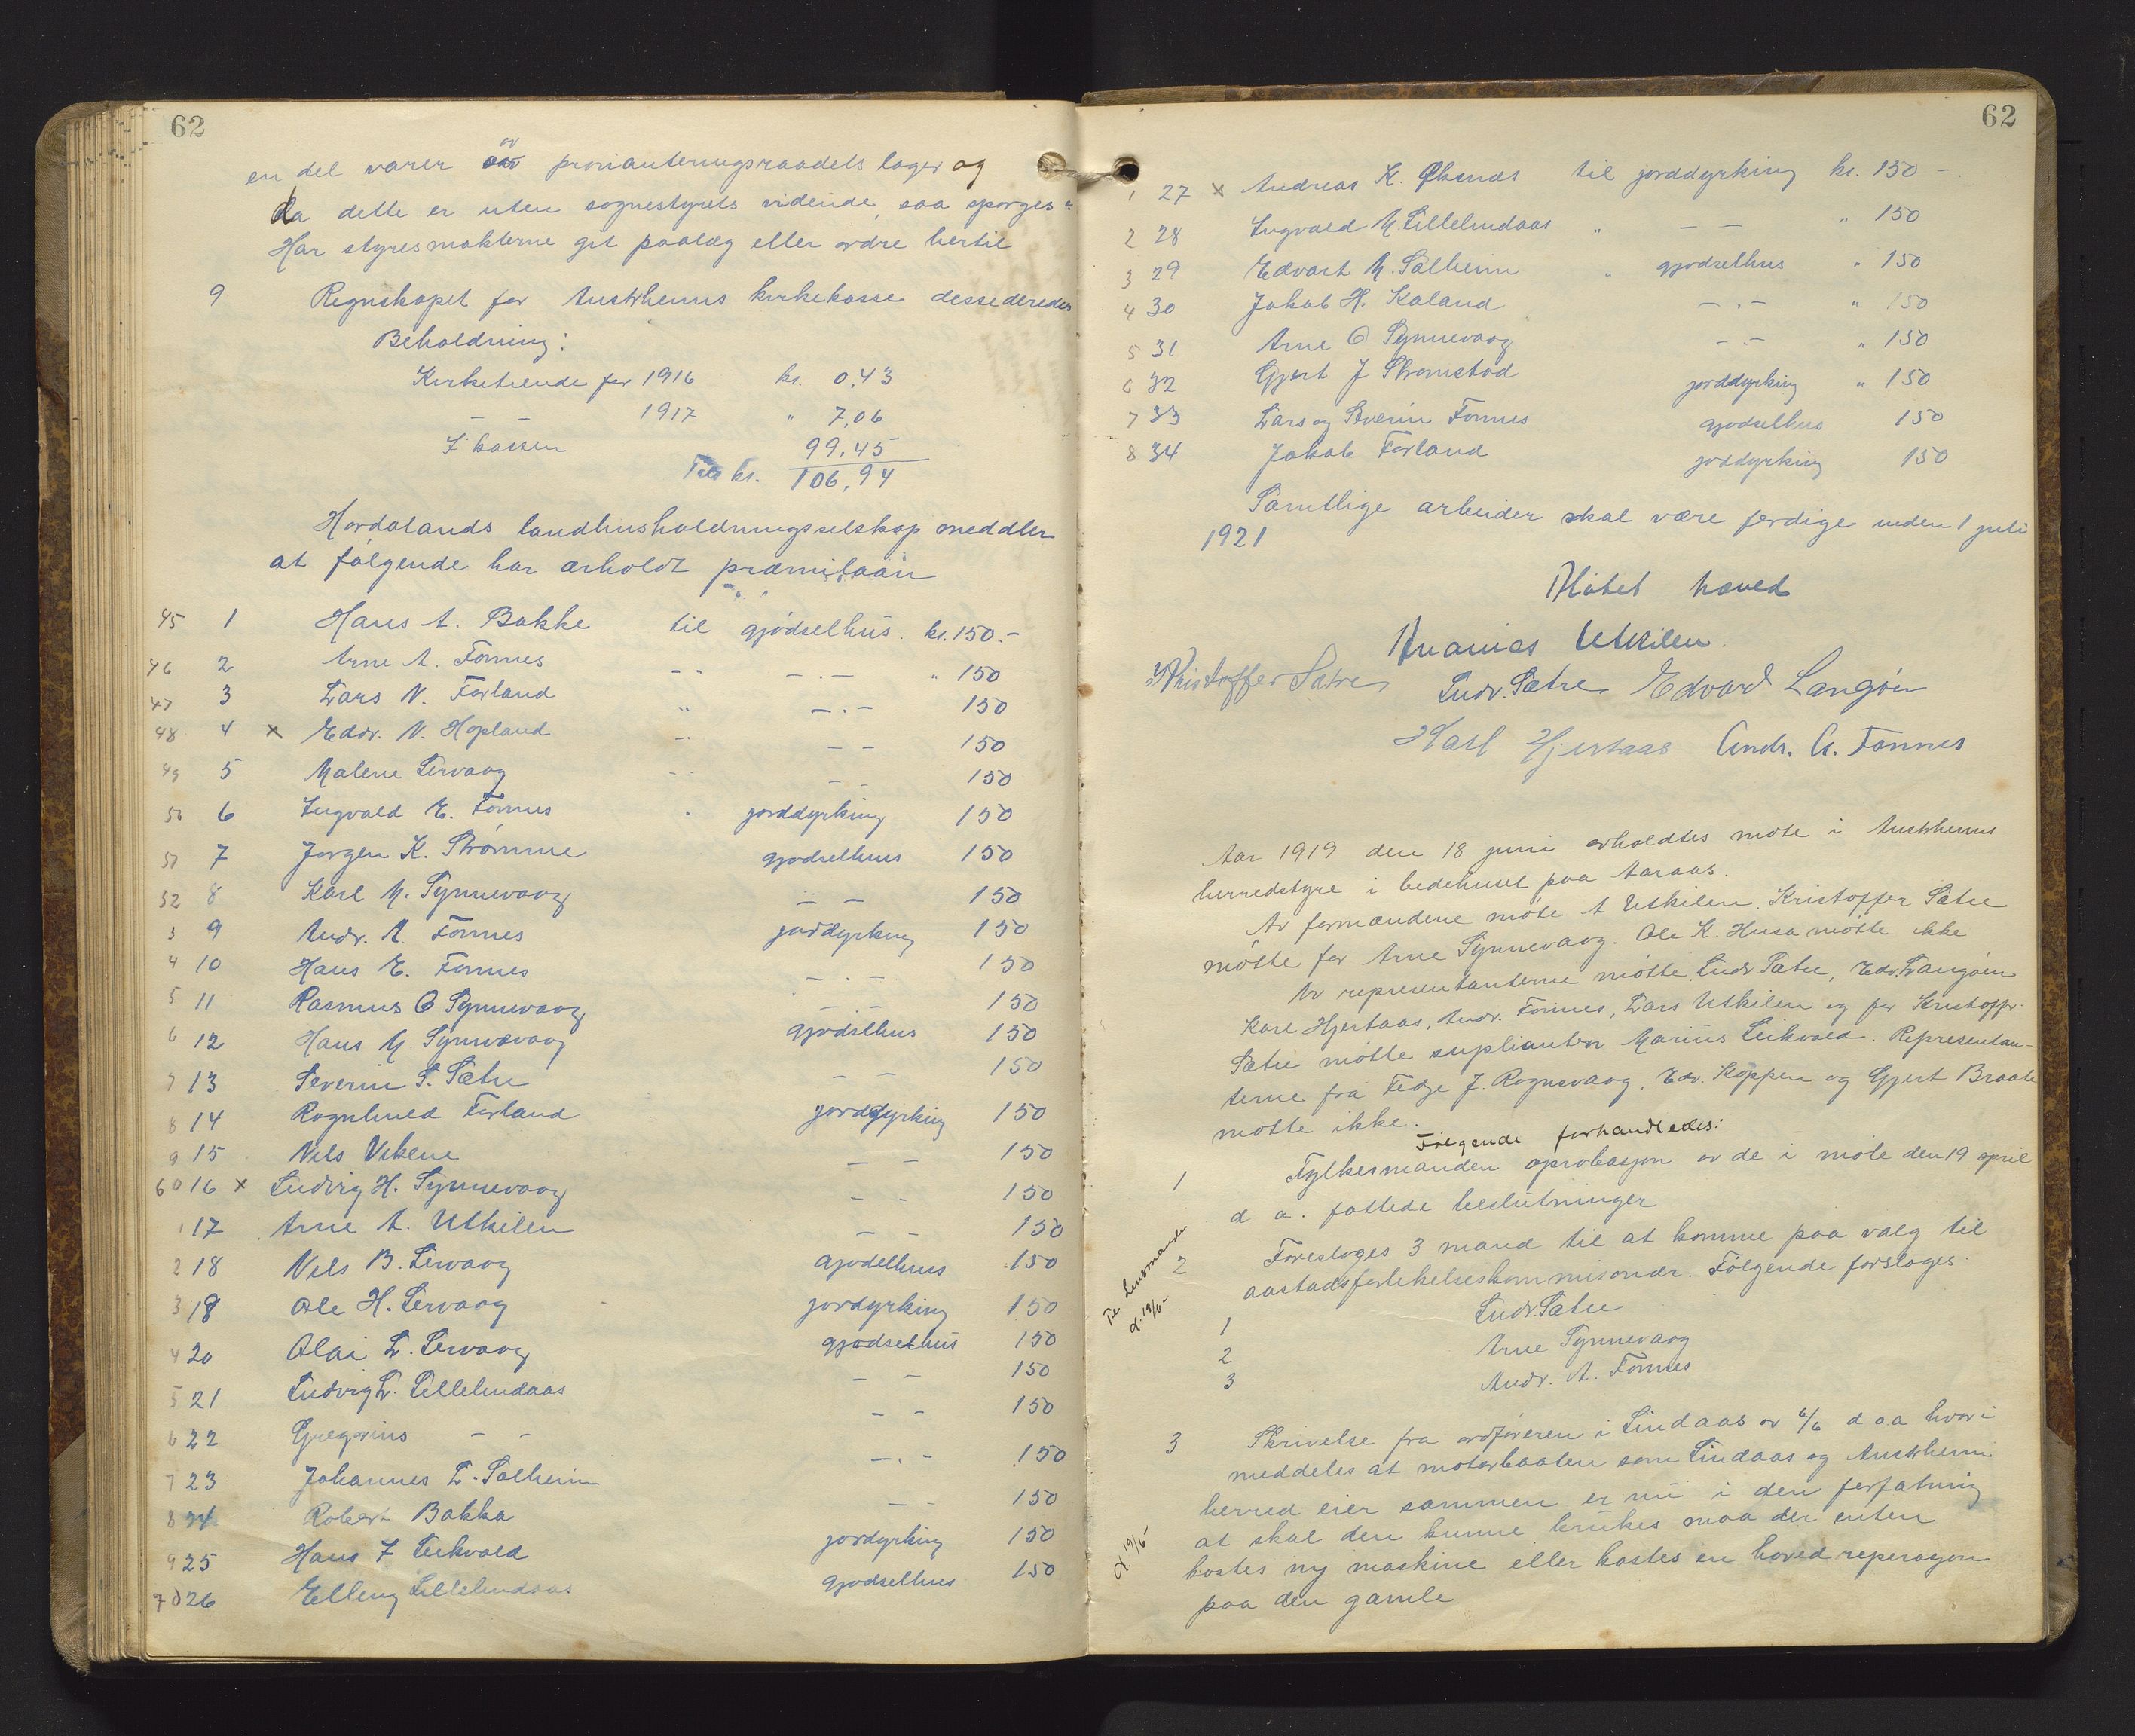 62
en del varer av provianteringsraadets lager og
da dette er uten sognestyrets vidende, saa spørges:
Har styresmakterne git paalæg eller ordre hertil
9 Regnskapet for Austrheims kirkekasse dessederedes
Beholdning:
Kirketiende for 1916 kr. 0,43
— — 1917 " 7,06
I kassen 99,45
Tils kr. 106,94
Hordalands landhusholdningsselskap meddler
at følgende har erholdt præmilaan
45 1 Hans A. Bakke til gjødselhus. kr. 150.-
46 2 Arne A. Fonnes - - — . — " 150
47 3 Lars N. Førland " — . — 150
48 4 x Edv. N. Hopland - — — 150
49 5 Malene Lervaag - - — 150
50 6 Ingvald E. Fonnes jorddyrking 150
51 7 Jørgen K. Strømme gjødselhus 150
52 8 Karl M. Synnevaag — — 150
3 9 Andr. A. Fonnes jorddyrking 150
4 10 Hans E. Fonnes — . — 150
5 11 Rasmus O Synnevaag — — 150
6 12 Hans M. Synnevaag gjødslhus 150
7 13 Severin S. Sætre — — 150
8 14 Ragnhild Førland jorddyrking 150
9 15 Nils Vikene — — 150
60 16 x Ludvig H. Synnevaag — - 150
1 17 Arne A. Utkilen — - 150
2 18 Nils B. Lervaag gjødelhus 150
3 19 Ole H. Lervaag jordyrking 150
4 20 Olai L. Lervaag gjødselhus 150
5 21 Ludvig L. Lillelindaas — — 150
6 22 Gregorius — — — - 150
7 23 Johannes L. Solheim — . - 150
8 24 Robert Bakka — — 150
9 25 Hans J Leikvold jordyrking 150
70 26 Elling Lillelindaas gjødselhus 150
62
1 27 x Andreas K. Øksnes til jorddyrking kr. 150 –
2 28 Ingvald M. Lillelindaas " — — " 150
3 29 Edvart M. Solheim " gjødselhus " 150
4 30 Jakob H. Kaland — . — " 150
5 31 Arne O Synnevaag — . — " 150
6 32 Gjert J Strømstad jorddyrking " 150
7 33 Lars og Severin Fonnes gjødselhus 150
8 34 Jakob Førland joddyrking 150
Samtlige arbeider skal være ferdige inden 1 juli
1921
Møtet hæved
Ananias Utkilen
Kristoffer Sætre Ludv. Sætre Edvard Langøen
Karl Hjertaas Andr. A. Fonnes
Aar 1919 den 18 juni avholdtes møte i Austrheims
herredstyre i bedehuset paa Aaraas.
Av formændene møte A Utkilen. Kristoffer Sætre
møtte for Arne Synnevaag. Ole K. Husa møtte ikke
Av representanterne møtte Ludv Sætre, Edv. Langøen
Karl Hjertaas, Andr. Fonnes, Lars Utkilen og for Kristoffr.
Sætre møtte suplianten Marius Leikvold. Representan-
terne fra Fedje J. Rognsvaag, Edv. Koppen og Gjert Braate
møtte ikke.
Følgende forhandledes:
1 Fylkesmanden aprobasjon av de i møte den 19 april
d a. fattede beslutninger
2 Foreslages 3 mand til at komme paa valg til
aastadsforlikelseskommisonær. Følgende forslages.
Til Lensmanden
d. 19/6-
1 Ludv. Sætre
2 Arne Synnevaag
3 Andr. A. Fonnes
3 Skrivelse fra ordføreren i Lindaas av 6/6 d aa hvori
meddeles at motorbaaten som Lindaas og Austrheim
herred eier sammen er nu i den forfatning
at skal den kunne brukes maa der enten
d. 19/6-
kostes ny maskine eller kostes en hovedreperasjon
paa den gamle